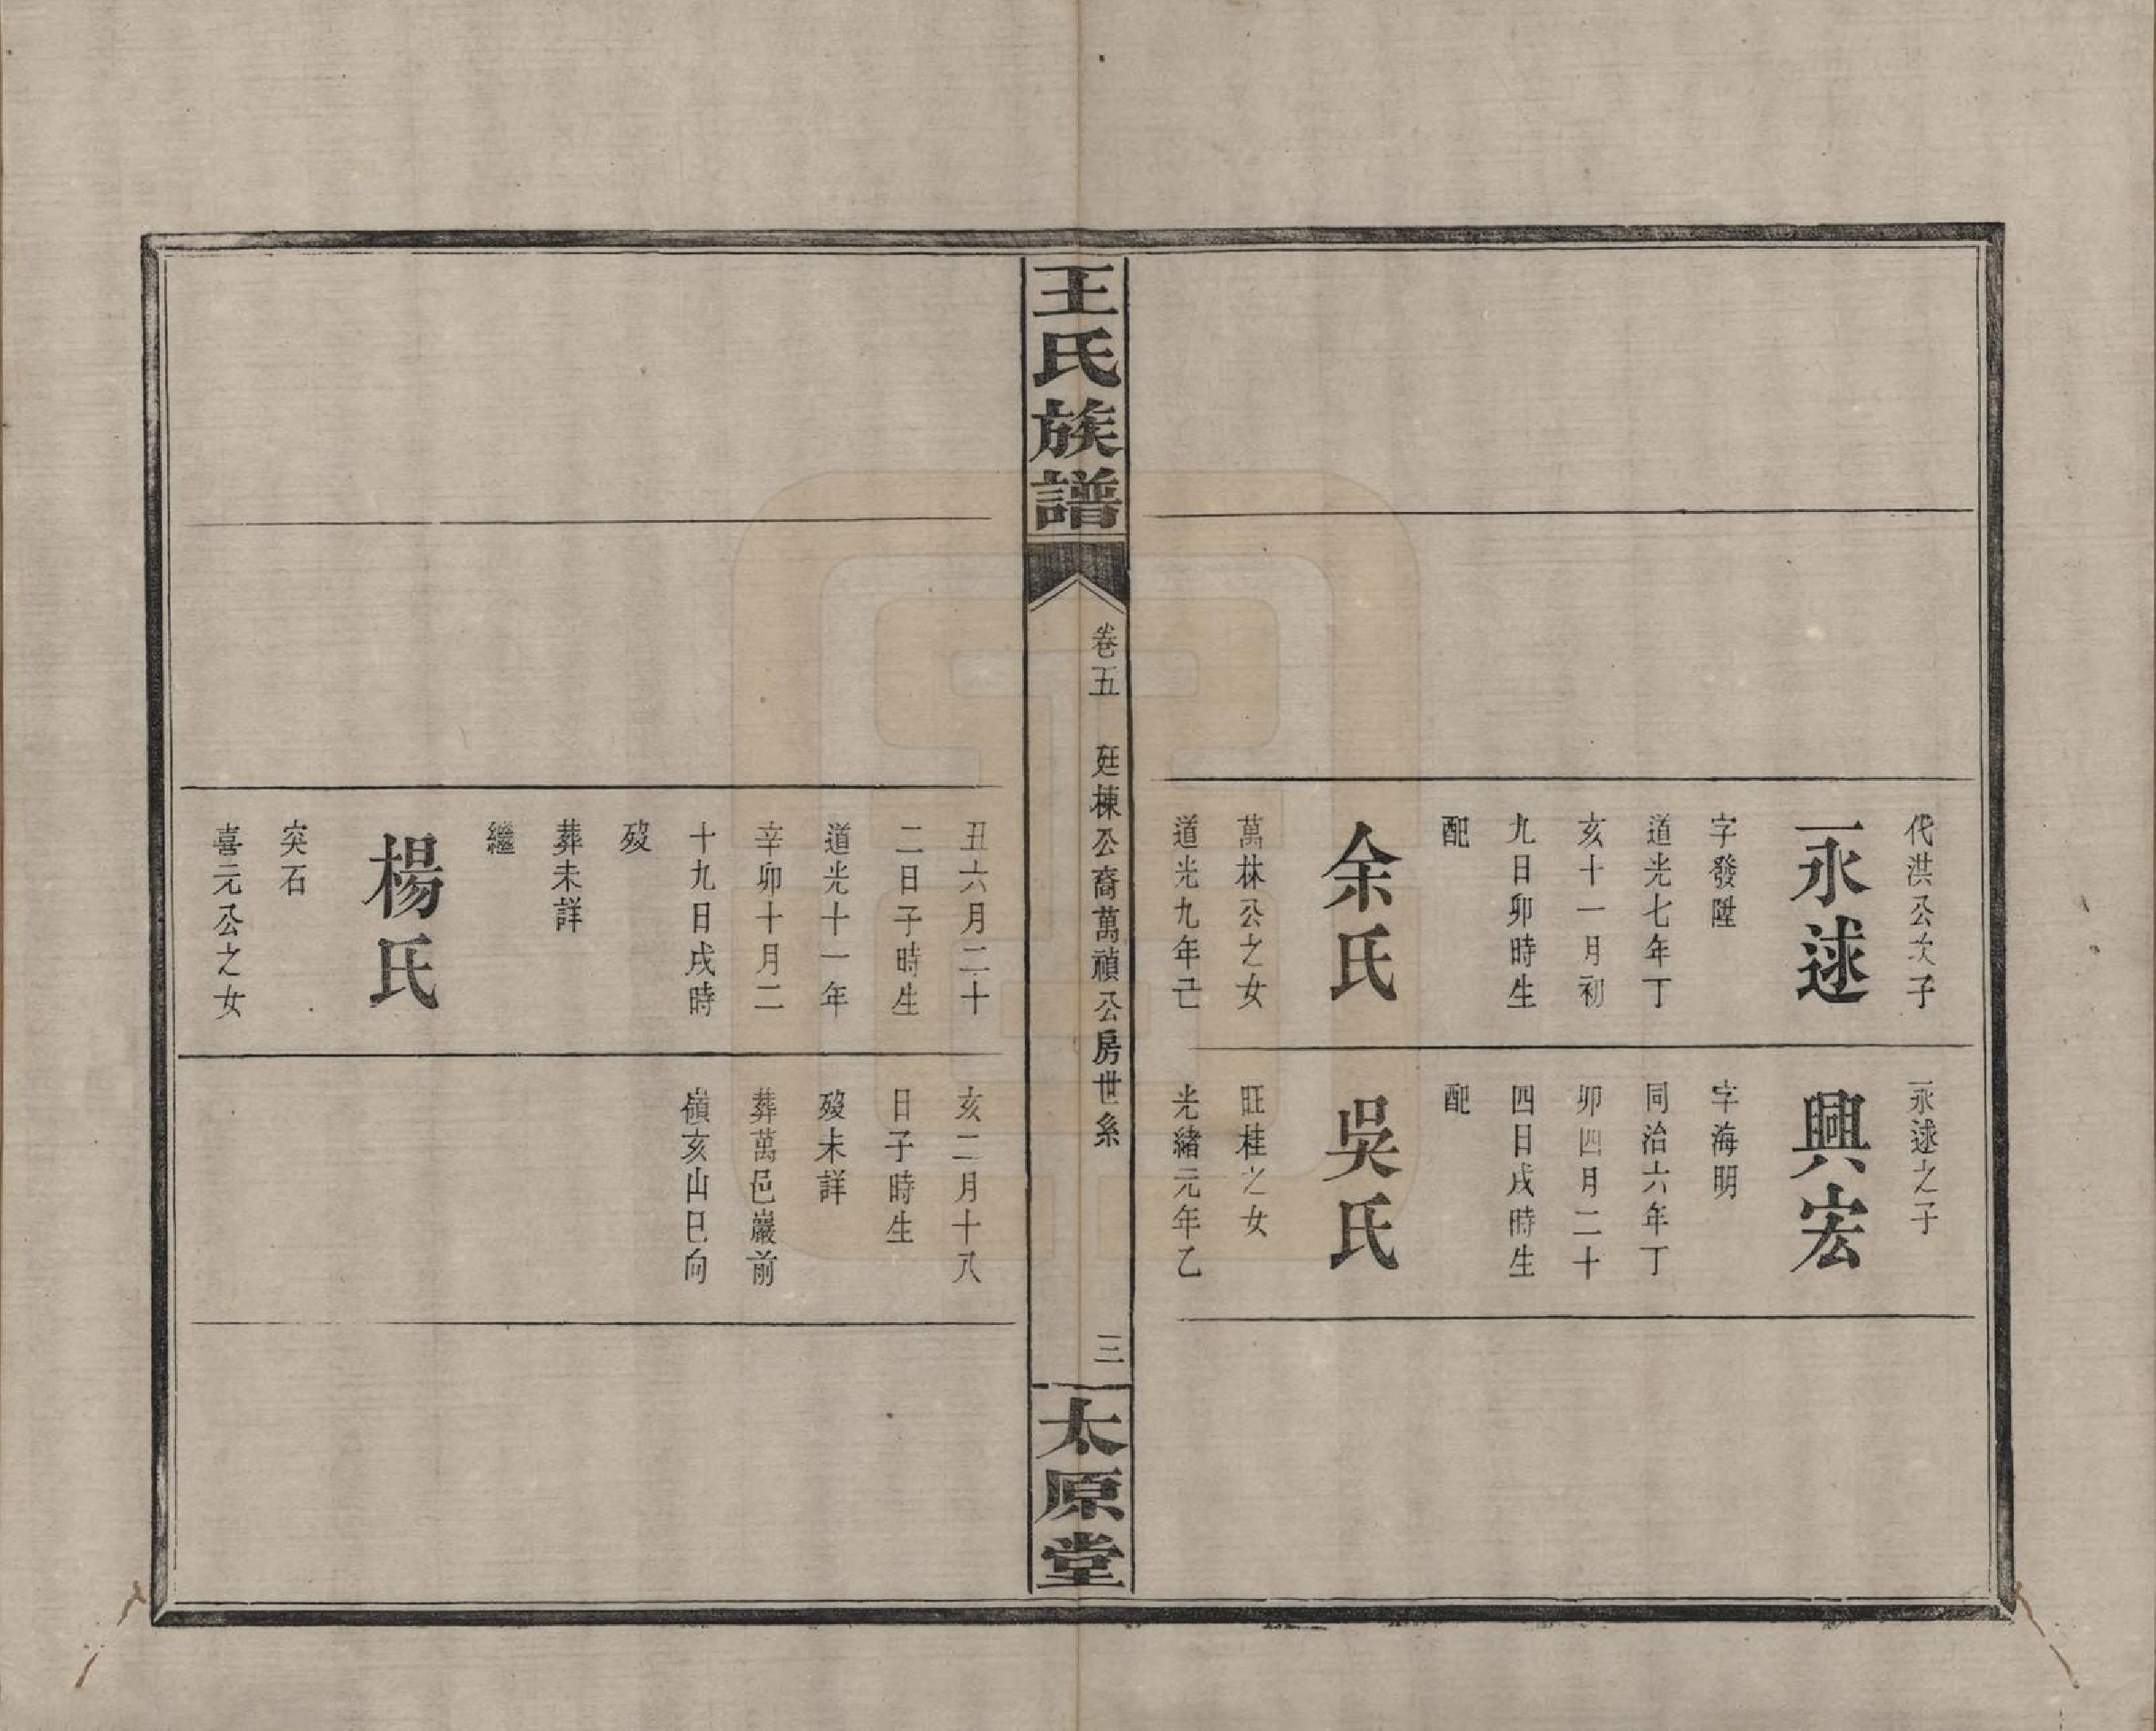 代洪公次子
永逑
字發陞
道光七年丁
亥十一月初
九日卯時生
配
余氏
萬林公之女
道光九年己
永逑之子
興宏
字海明
同治六年丁
卯四月二十
四日戌時生
配
吳氏
旺桂之女
光緒元年乙
王氏族譜
卷五 廷棟公裔萬禎公房世系
三
太原堂
丑六月二十
二日子時生
道光十一年
辛卯十月二
十九日戌時
歿
葬未詳
繼
楊氏
突石
喜元公之女
亥二月十八
日子時生
歿未詳
葬萬邑巖前
嶺亥山巳向